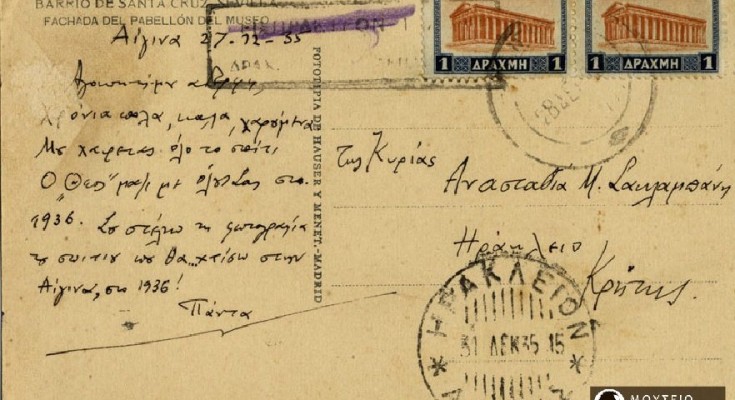 BARRIO DE SANTA CRUZ. SEVILLA
FACHADA DEL PABELLÓN DEL MUSEO
Αίγινα 27.12-35
Αγαπητή μου
Χρόνια πολλά, καλά, χαρούμενα
Με χαιρετάς όλο το σπίτι
Ο "Θεός" μαζί με όλους σας στο
1936. Σο στέλνω τη φωτογραφία
του σπιτιού που θα χτίσω στην
Αίγινα, στα 1936!
Πάντα
FOTOTIPIA DE HAUSER Y MENET.-MADRID
ΕΙΣΠΡΑΚΤΕΟΝ
ΔΡΑΧ.
1 ΔΡΑΧΜΗ 1
1 ΔΡΑΧΜΗ 1
28 ΔΕΚ
Της Κυρίας
Αναστασία Μ. Σακλαμπάνη
Ηράκλειο
Κρήτης
ΗΡΑΚΛΕΙΟΝ
31 ΔΕΚ 35 15
ΜΟΥΣΕΙΟ